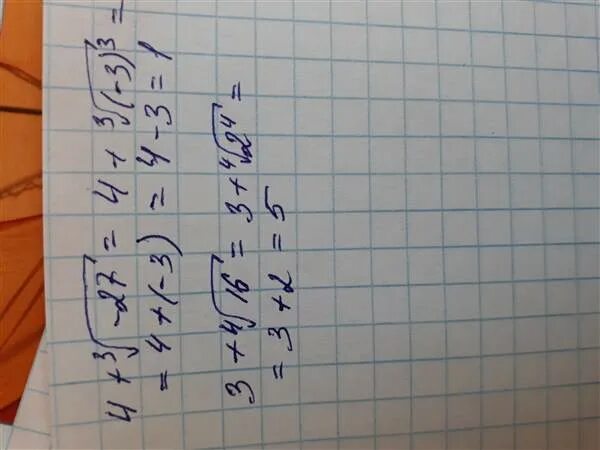 4 + ∛-27 = 4 + ∛(-3)³ =
= 4 + (-3) = 4 - 3 = 1
3 + ∜16 = 3 + ∜2⁴ =
= 3 + 2 = 5